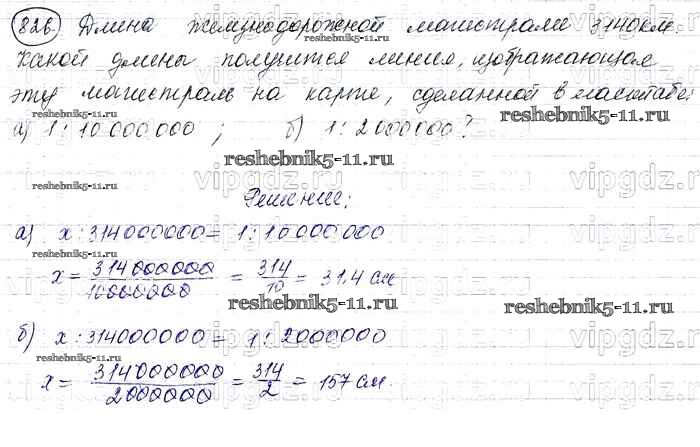 826. Длина железнодорожной магистрали 3140 км.
Какой длины получится линия, изображающая
эту магистраль на карте, сделанной в масштабе:
а) 1 : 10 000 000 ; б) 1 : 2 000 000 ?
reshebnik5-11.ru
reshebnik5-11.ru
reshebnik5-11.ru
Решение:
а) x : 314000000 = 1 : 10 000 000
reshebnik5-11.ru
x = 314 000 000 / 10000000 = 314 / 10 = 31,4 см
reshebnik5-11.ru
reshebnik5-11.ru
б) x : 314000000 = 1 : 2000000
reshebnik5-11.ru
x = 314 000 000 / 2000000 = 314 / 2 = 157 см.
vipgdz.ru